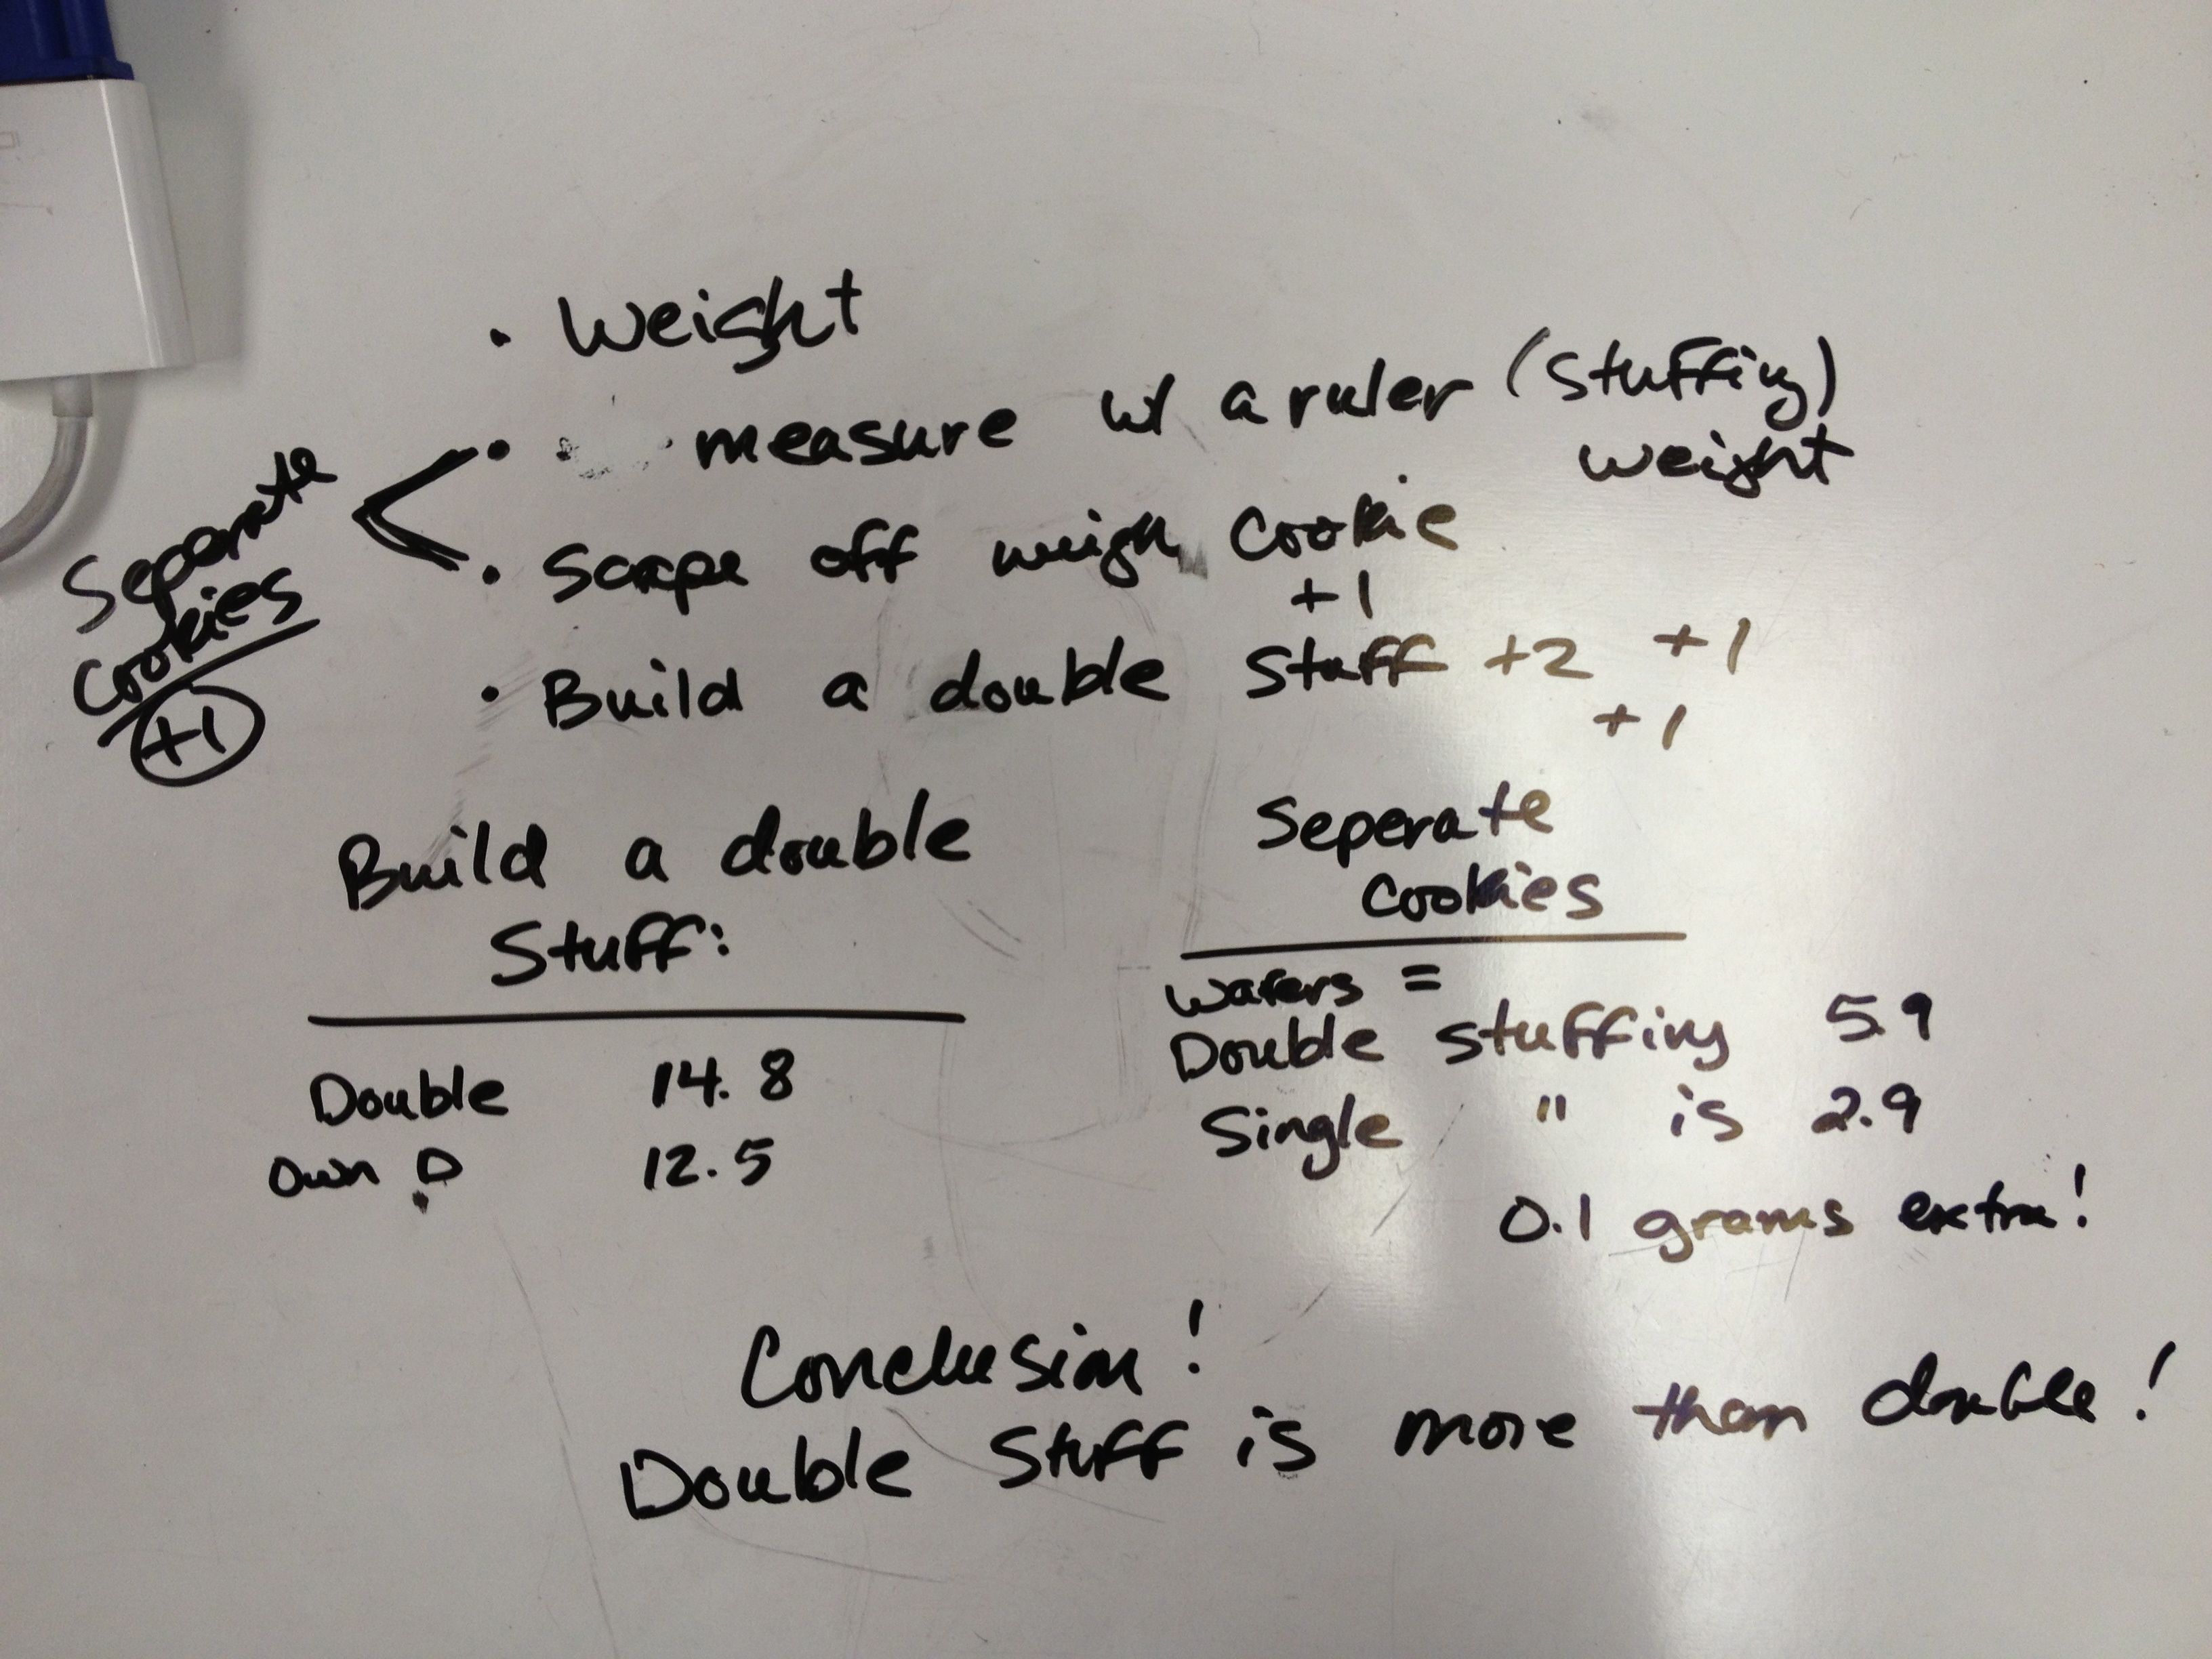 • Weight
• measure w/ a ruler (stuffing)
weight
Separate
cookies
+1
• Scrape off weigh cookie
+1
• Build a double stuff +2 +1
+1
Build a double
Stuff:
Double 14.8
Own D 12.5
Seperate
cookies
wafers =
Double stuffing 5.9
Single " is 2.9
0.1 grams extra!
Conclusion!
Double Stuff is more than double!